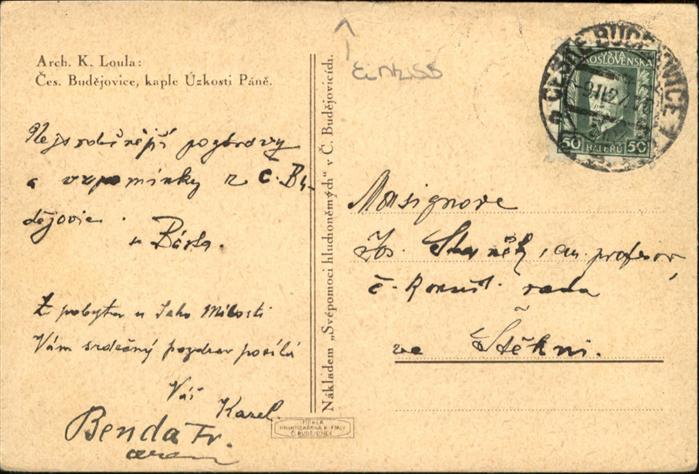 Arch. K. Loula:
Čes. Budějovice, kaple Úzkosti Páně.
Nejsrdečnější pozdravy
a vzpomínky z Č. Bu-
dějovic.
Z pobytu u Jeho Milosti
Vám srdečný pozdrav posílá
Váš
Karel.
Benda Fr.
Nákladem „Svépomoci hluchoněmých“ v Č. Budějovicích.
ČESKÉ BUDĚJOVICE
ČESKOSLOVENSKÁ
50 HALÉŘŮ 50
Monsignore
Jos. ctn. profesor,
č. konsist. rada
ve Štěkni.